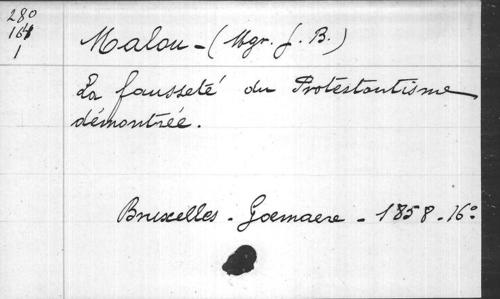 280
164
1
Malou - (Mgr. J. B.)
La fausseté du Protestantisme
démontrée.
Bruxelles - Goemaere - 1858 - 16°